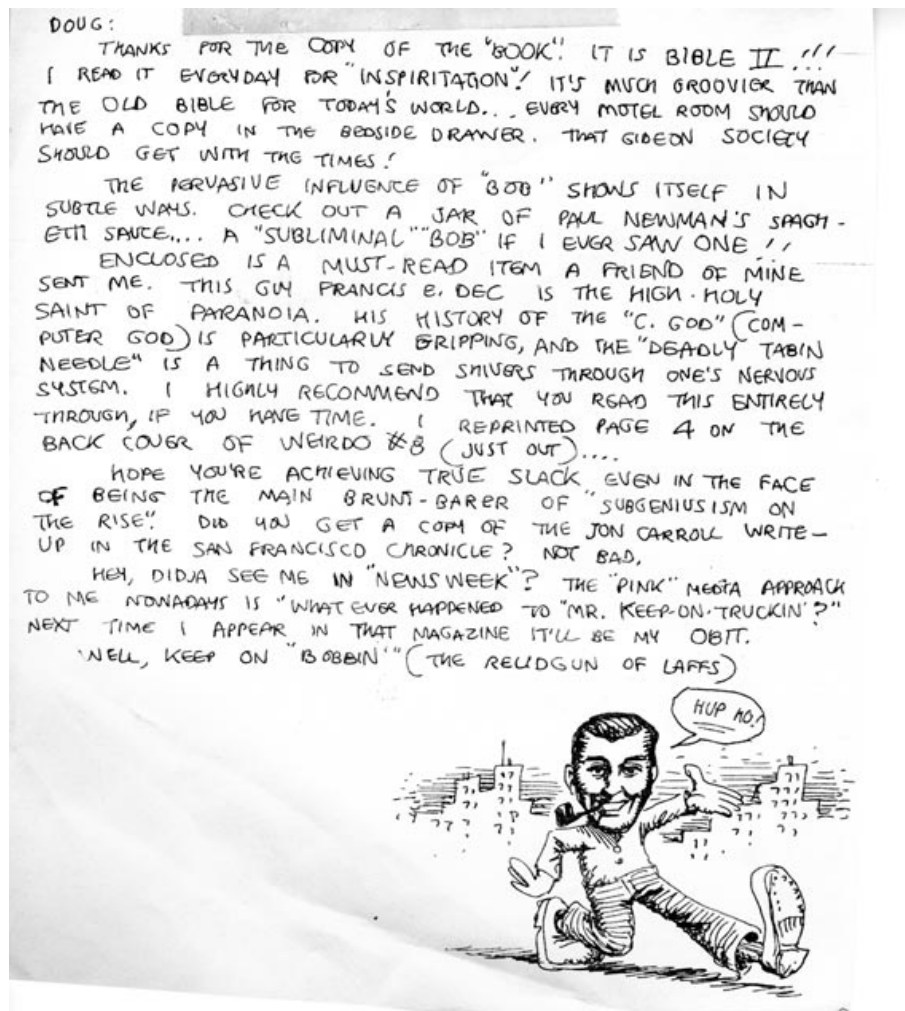 DOUG:
THANKS FOR THE COPY OF THE "BOOK"! IT IS BIBLE II !!!
I READ IT EVERYDAY FOR "INSPIRITATION"! IT'S MUCH GROOVIER THAN
THE OLD BIBLE FOR TODAY'S WORLD... EVERY MOTEL ROOM SHOULD
HAVE A COPY IN THE BEDSIDE DRAWER. THAT GIDEON SOCIETY
SHOULD GET WITH THE TIMES!
THE PERVASIVE INFLUENCE OF "BOB" SHOWS ITSELF IN
SUBTLE WAYS. CHECK OUT A JAR OF PAUL NEWMAN'S SPAGH-
ETTI SAUCE.... A "SUBLIMINAL" "BOB" IF I EVER SAW ONE !!
ENCLOSED IS A MUST-READ ITEM A FRIEND OF MINE
SENT ME. THIS GUY FRANCIS E. DEC IS THE HIGH-HOLY
SAINT OF PARANOIA. HIS HISTORY OF THE "C. GOD" (COM-
PUTER GOD) IS PARTICULARLY GRIPPING, AND THE "DEADLY TABIN
NEEDLE" IS A THING TO SEND SHIVERS THROUGH ONE'S NERVOUS
SYSTEM. I HIGHLY RECOMMEND THAT YOU READ THIS ENTIRELY
THROUGH, IF YOU HAVE TIME. I REPRINTED PAGE 4 ON THE
BACK COVER OF WEIRDO #8 (JUST OUT)....
HOPE YOU'RE ACHIEVING TRUE SLACK EVEN IN THE FACE
OF BEING THE MAIN BRUNT-BARER OF "SUBGENIUSISM ON
THE RISE". DID YOU GET A COPY OF THE JON CARROLL WRITE-
UP IN THE SAN FRANCISCO CHRONICLE? NOT BAD.
HEY, DIDJA SEE ME IN "NEWSWEEK"? THE "PINK" MEDIA APPROACH
TO ME NOWADAYS IS "WHAT EVER HAPPENED TO "MR. KEEP-ON-TRUCKIN'?"
NEXT TIME I APPEAR IN THAT MAGAZINE IT'LL BE MY OBIT.
WELL, KEEP ON "BOBBIN'" (THE RELIDGUN OF LAFFS)
HUP HO!